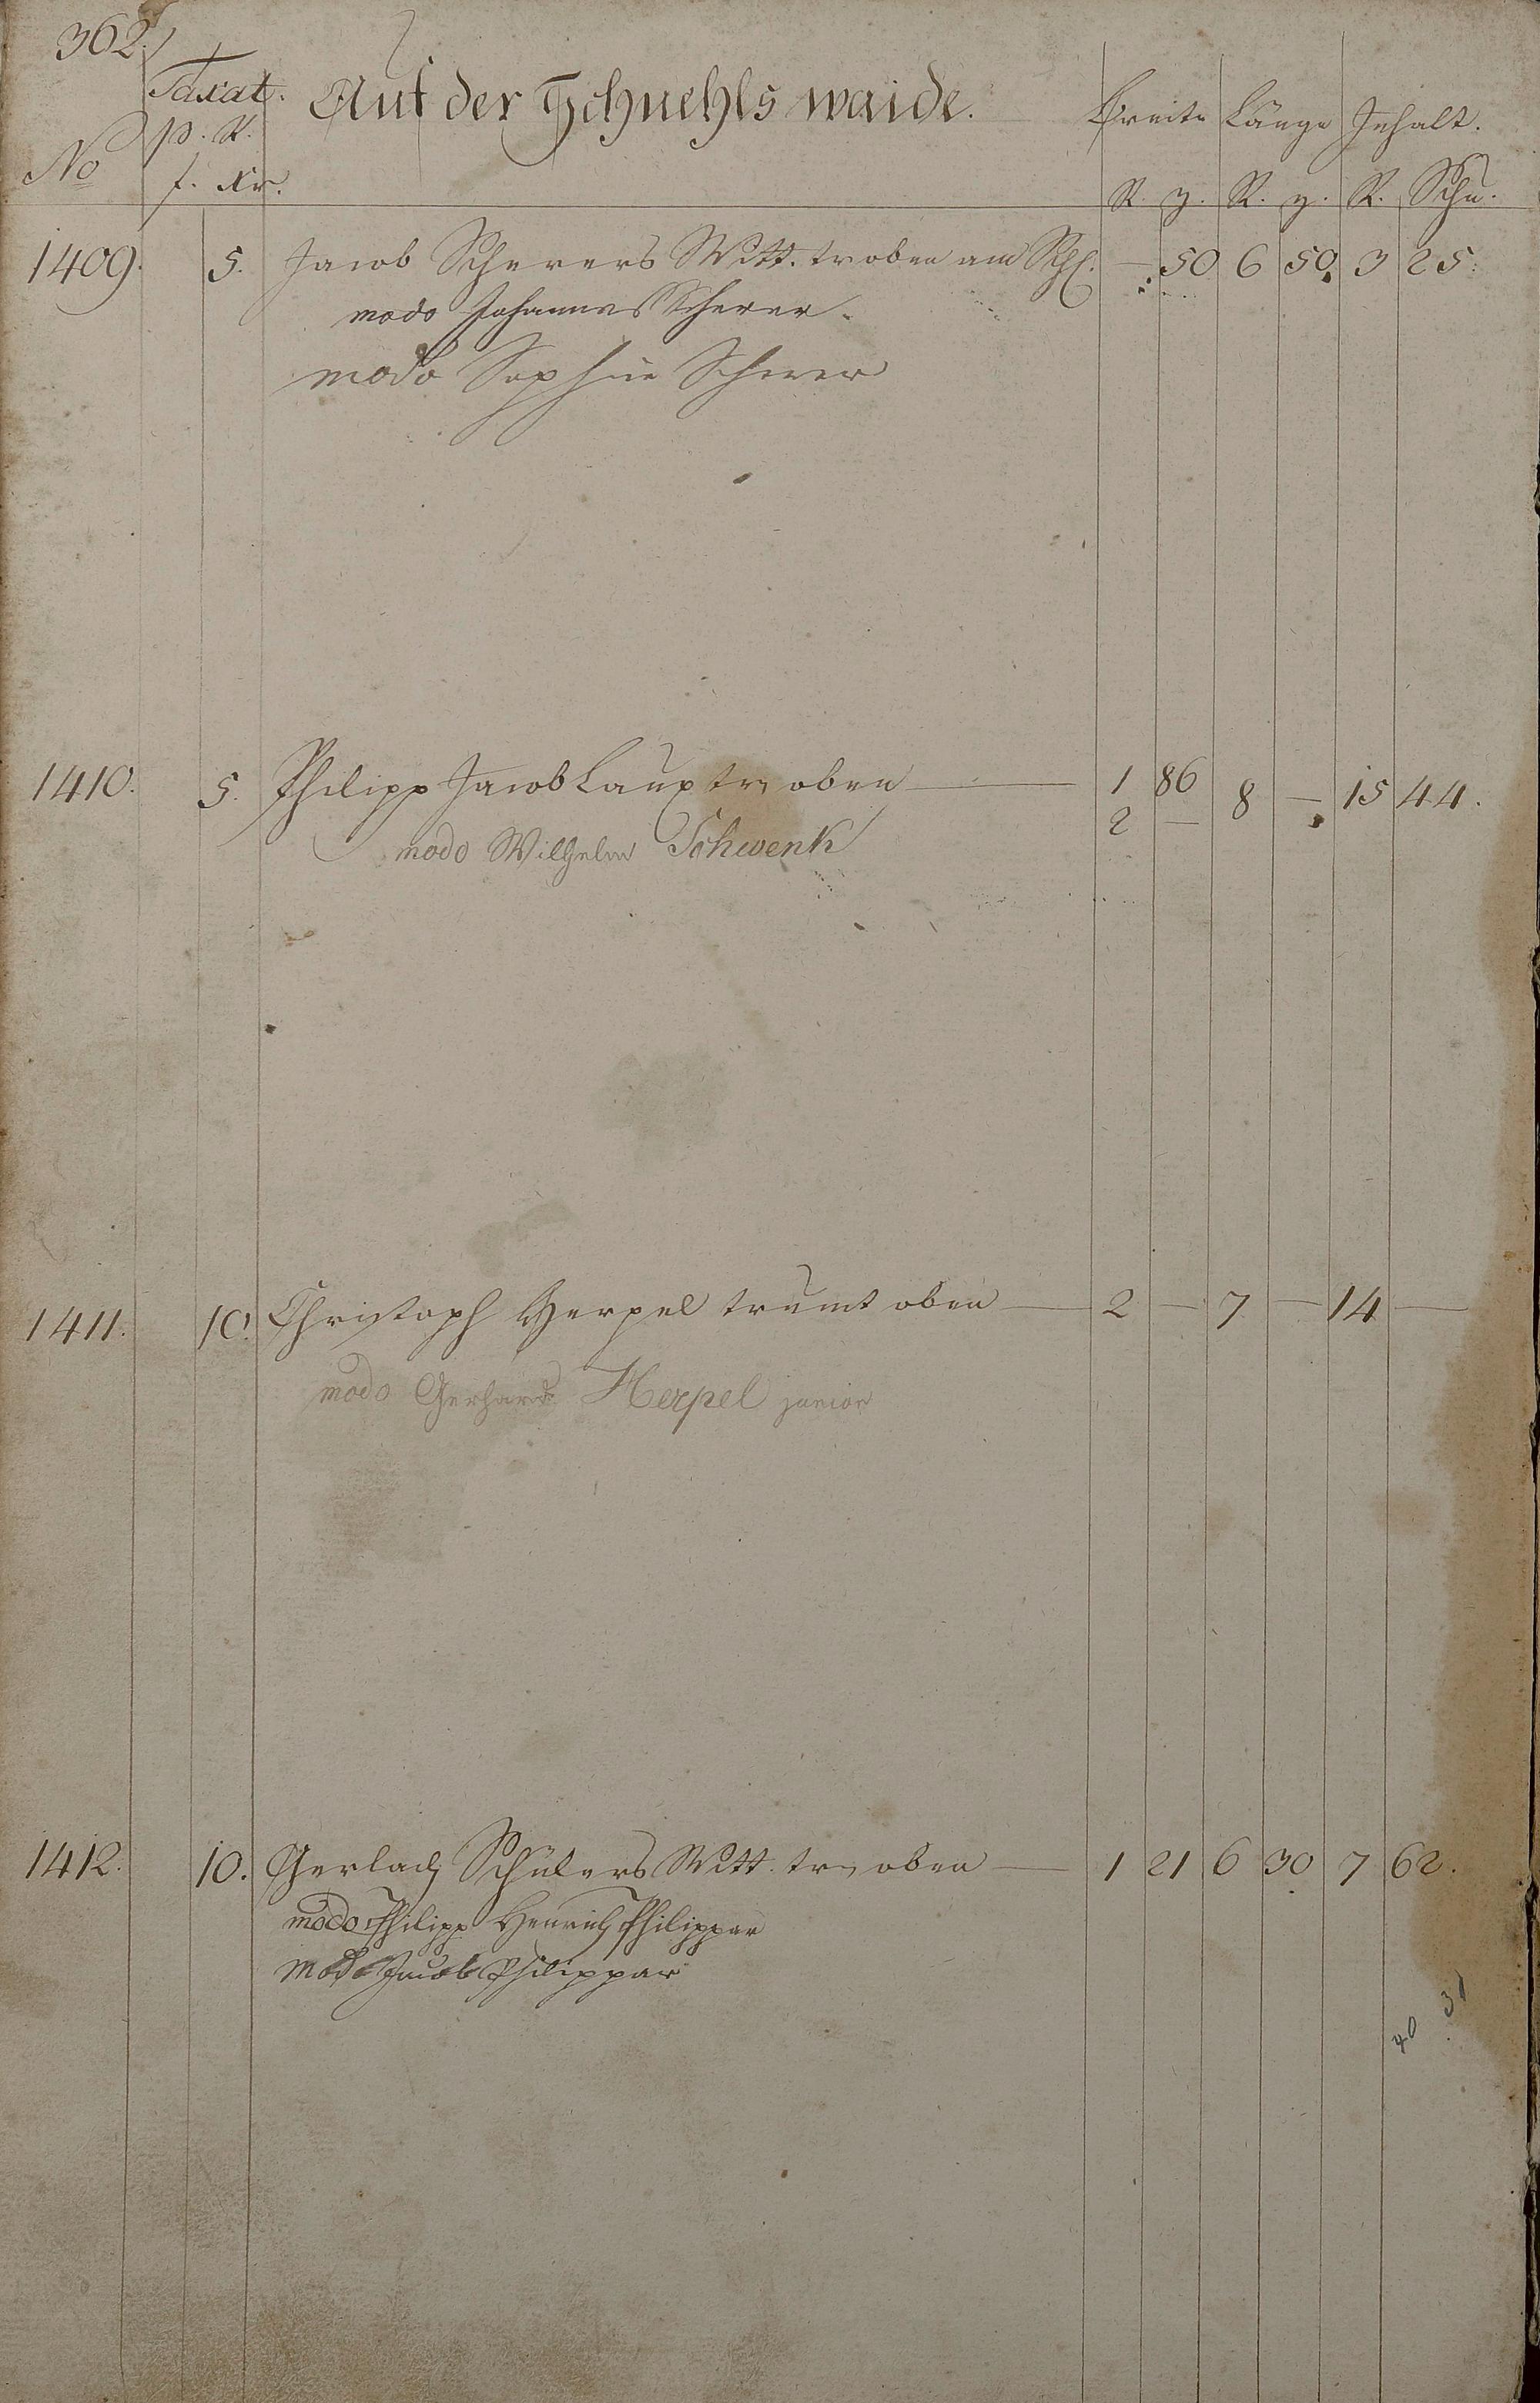 362.
Taxat. Auf der Schnehls waide. Breite Länge Inhalt.
No p. R.
f. Xr. R. z. R. z. R. Schu.
1409. 5. Jacob Scherers Witt. tr oben am — 50 6 50. 3 25.
modo Johannes Scherer.
modo Sophie Scherer
1410. 5. Philipp Jacob Laux tr oben — 1 86 8 — 15 44.
2 —
modo Wilhelm Schwenk
1411. 10. Christoph Herpel trumt oben — 2 — 7 — 14 —
modo Gerhard Herpel junior
1412. 10. Gerlach Schülers Witt. tr oben — 1 21 6 30 7 62.
modo Philipp Henrich Philippar
modo Jacob Philippar
40 31